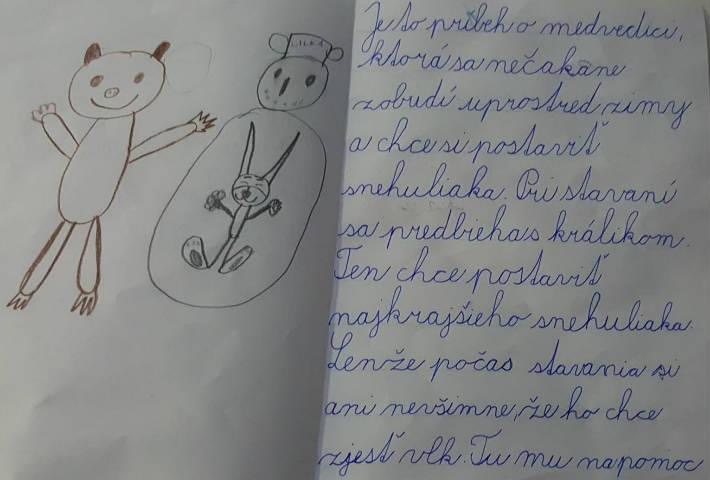 LILKA
Je to príbeh o medvedici,
ktorá sa nečakane
zobudí uprostred zimy
a chce si postaviť
snehuliaka. Pri stavaní
sa predbieha s králikom.
Ten chce postaviť
najkrajšieho snehuliaka.
Lenže počas stavania si
ani nevšimne, že ho chce
zjesť vlk. Tu mu na pomoc